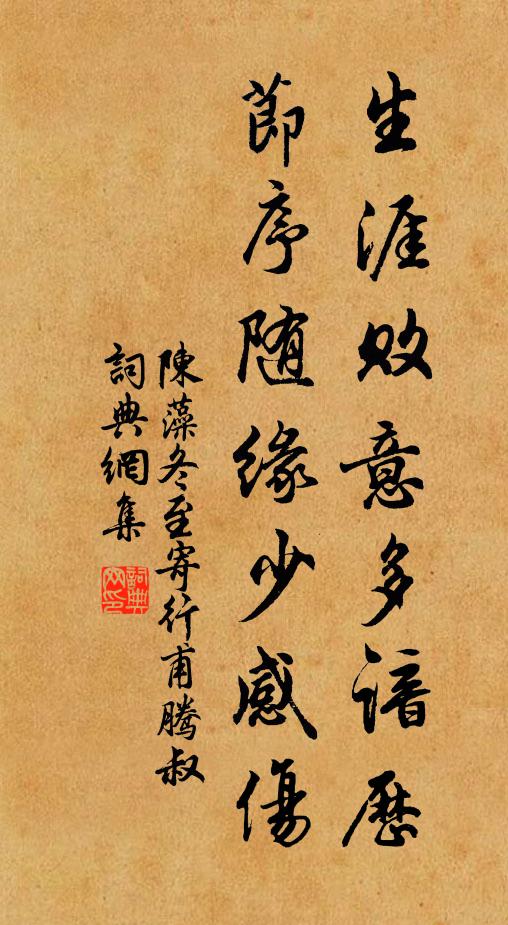 生涯敗意多諳歷
節序隨緣少感傷
陳藻冬至寄行甫騰叔
詞典網集
詞典网印